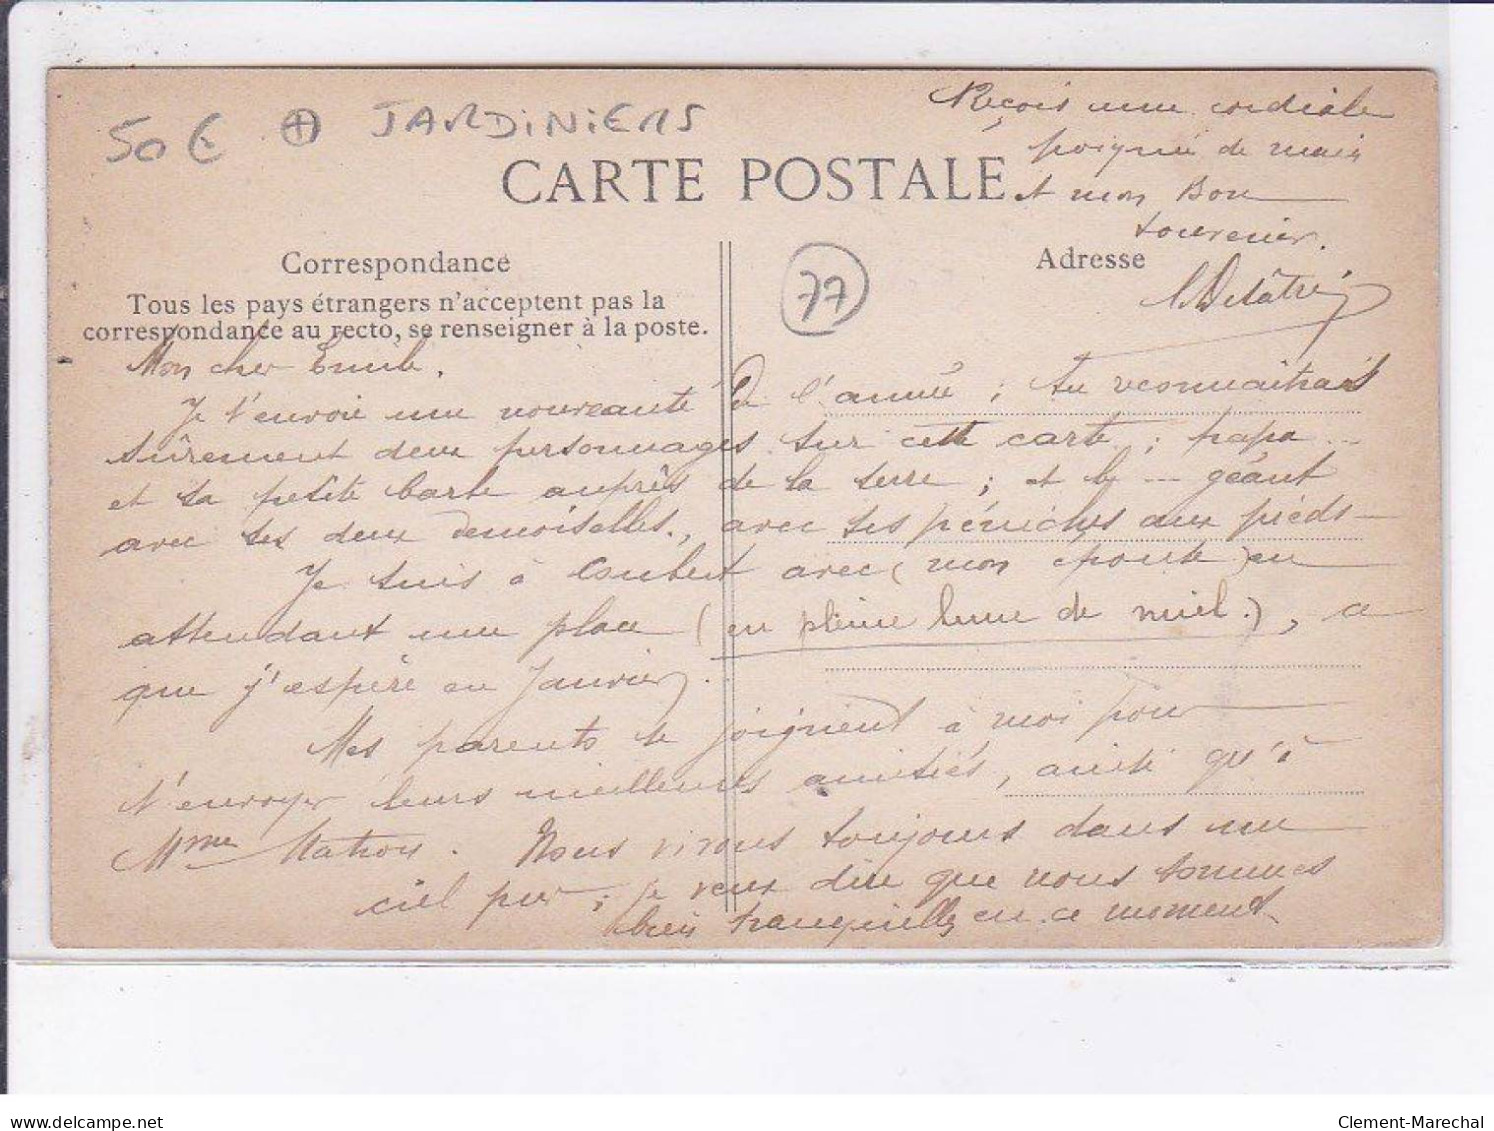 50 € ⊕ JARDINIERS
CARTE POSTALE
Correspondance
Tous les pays étrangers n'acceptent pas la
correspondance au recto, se renseigner à la poste.
77
Adresse
Mon cher Emile,
Je t'envoie une nouveauté de l'année ; tu reconnaitrais
sûrement deux personnages sur cette carte ; papa ...
et sa petite barbe auprès de la serre ; et le ... géant
avec ses deux demoiselles, avec ses péniches aux pieds -
Je suis à Coubert avec (mon épouse) en
attendant une place (en pleine lune de miel.), ce
que j'espère en Janvier.
Mes parents se joignent à moi pour
t'envoyer leurs meilleures amitiés, ainsi qu'à
Mme Matron. Nous vivons toujours dans un
ciel pur ; je veux dire que nous sommes
bien tranquilles en ce moment
Reçois une cordiale
poignée de main
et mon Bon
souvenir.
Delâtre
Clement-Marechal
delcampe.net